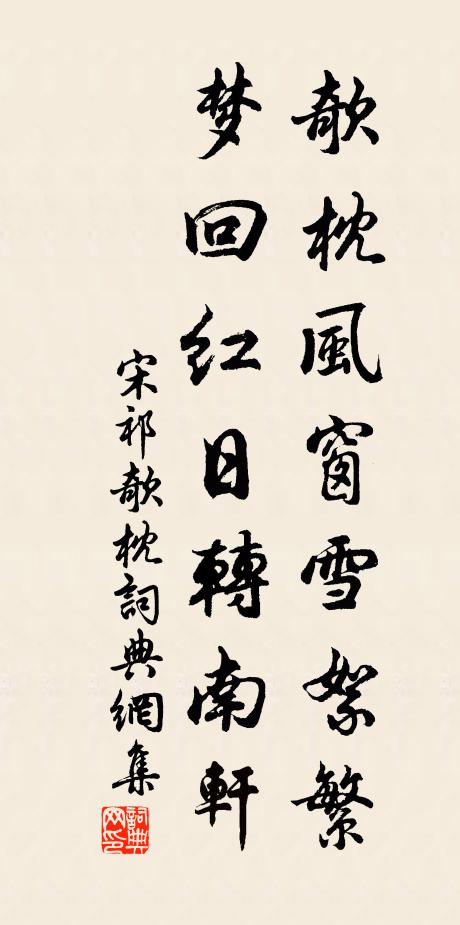 欹枕風窗雪絮繁
梦回红日轉南軒
宋祁欹枕詞典網集
詞典网印